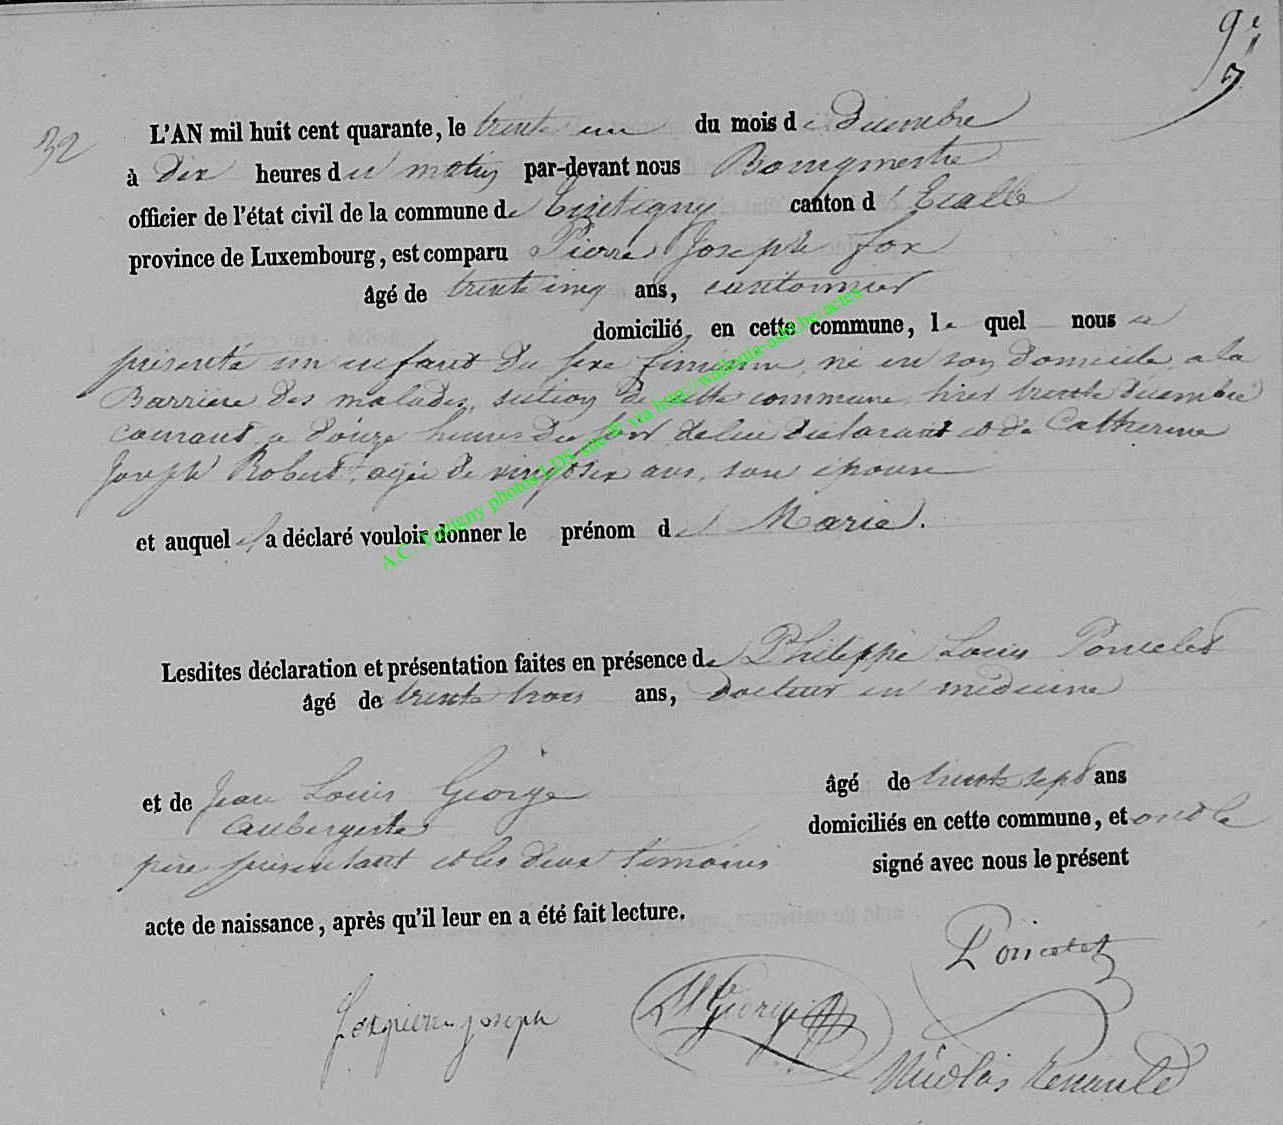 9e
32
L'AN mil huit cent quarante, le trente un du mois de Decembre
à dix heures du matin par-devant nous Bourgmestre
officier de l'état civil de la commune de Tintigny canton d'Etalle
province de Luxembourg, est comparu Pierre Joseph fox
âgé de trente cinq ans, cantonnier
domicilié en cette commune, le quel nous a
présenté un enfant du sexe féminin, né en son domicile, a la
Barriere des malades, section de cette commune, hier trente decembre
courant a douze heures du soir, de lui declarant et de Catherine
Joseph Robert, agée de vingt six ans, son épouse
et auquel il a déclaré vouloir donner le prénom de Marie.
Lesdites déclaration et présentation faites en présence de Philippe Louis Poncelet
âgé de trente trois ans, docteur en médecine
et de Jean Louis George âgé de trente sept ans
aubergiste domiciliés en cette commune, et ont le
père présentant et les deux témoins signé avec nous le présent
acte de naissance, après qu'il leur en a été fait lecture.
Poncelet
fox pierre joseph George
Nicolas Renauld
A.C. Tintigny photos LDS site & via http://wallonia-asbl.be/actes